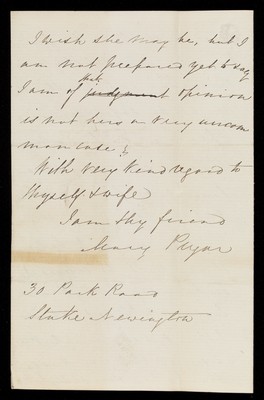 I wish she may be, but I
am not prepared yet to say
I am of that opinion
is not hers a very uncom
mon case?
With very kind regard to
thyself & wife
I am thy friend
Mary Pryor
30 Park Road
Stoke Newington